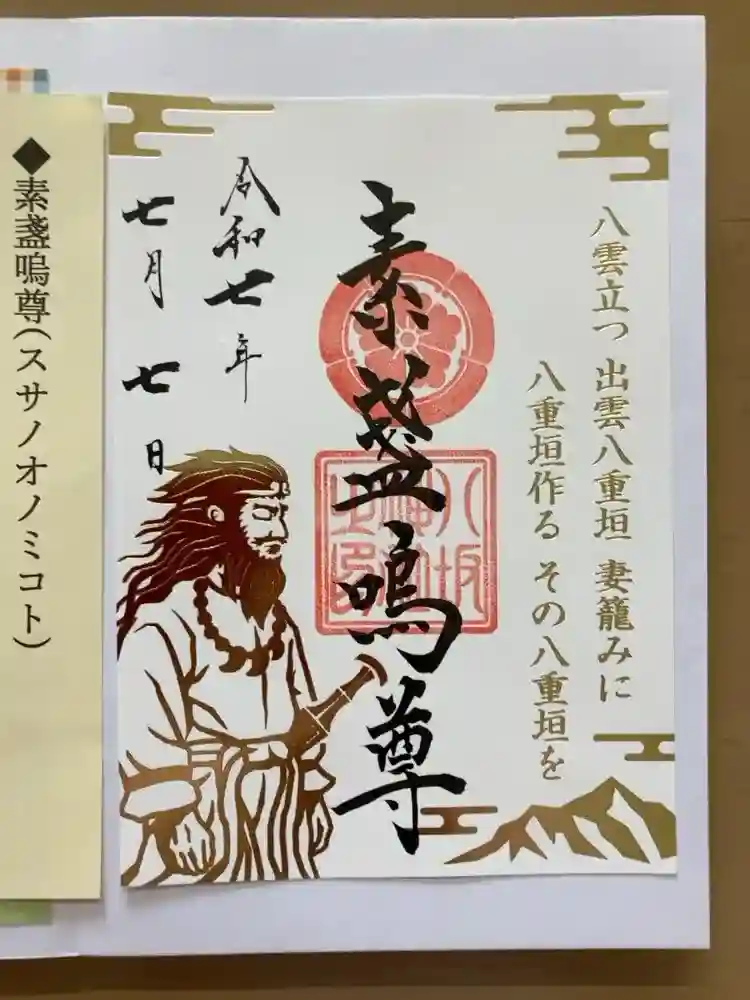 八雲立つ 出雲八重垣 妻籠みに
八重垣作る その八重垣を
素盞嗚尊
令和七年
七月七日
◆素盞嗚尊(スサノオノミコト)